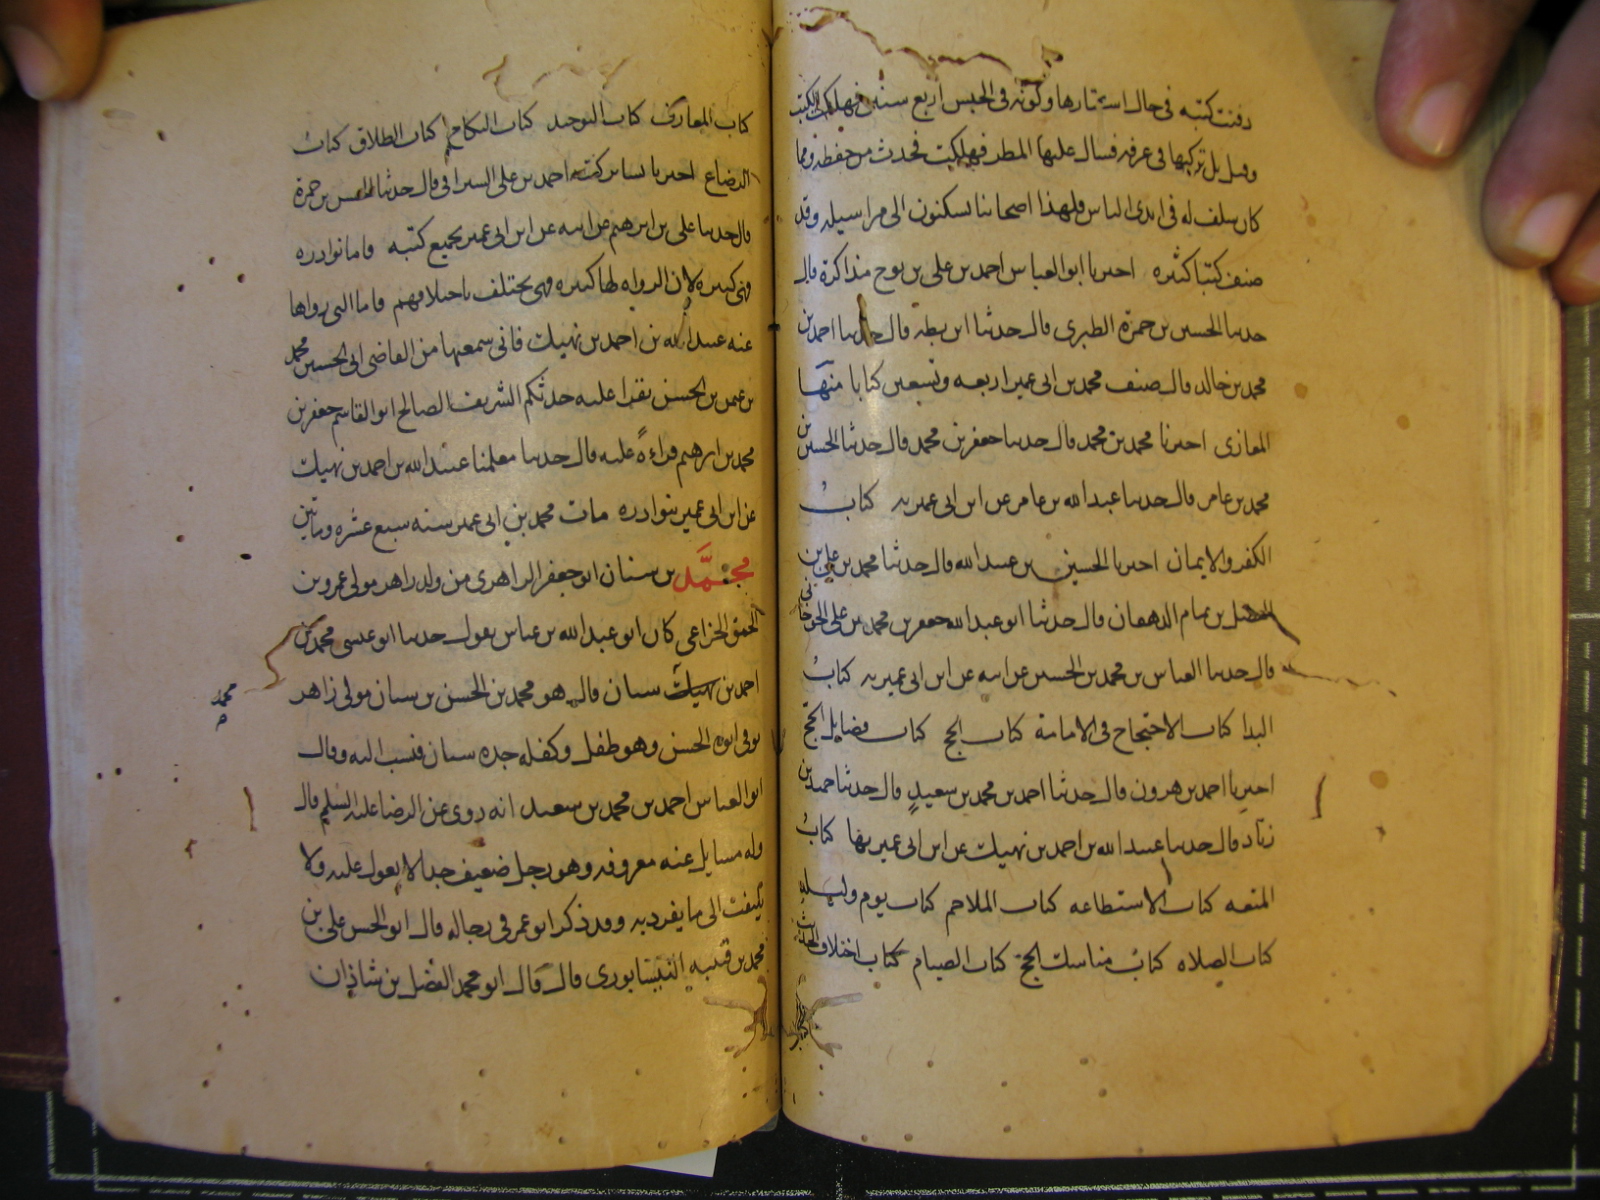 دفنت كتبه فى حال استتارها وكونه فى الحبس اربع سنين فهلكت الكتب
وقيل بل تركتها فى غرفة فسال عليها المطر فهلكت فحدث من حفظه ومما
كان سلف له فى ايدى الناس فلهذا اصحابنا يسكنون الى مراسيله وقد
صنف كتبا كثيره اخبرنا ابو العباس احمد بن على بن نوح مذاكرة قال
حدثنا الحسين بن حمزة الطبرى قال حدثنا ابن بطه قال حدثنا احمد بن
محمد بن خالد قال صنف محمد بن ابى عمير اربعه وتسعين كتابا منها
المغازى اخبرنا محمد بن محمد قال حدثنا جعفر بن محمد قال حدثنا الحسين بن
محمد بن عامر قال حدثنا عبد الله بن عامر عن ابن ابى عمير به كتاب
الكفر والايمان اخبرنا الحسين بن عبيد الله قال حدثنا محمد بن على بن
الفضل بن تمام الدهقان قال حدثنا ابو عبد الله جعفر بن محمد بن على
قال حدثنا العباس بن محمد بن الحسين عن ابيه عن ابن ابى عمير به كتاب
البدا كتاب الاحتجاج فى الامامة كتاب الحج كتاب فضايل الحج
اخبرنا احمد بن هرون قال حدثنا احمد بن محمد بن سعيد قال حدثنا حميد بن
زياد قال حدثنا عبيد الله بن احمد بن نهيك عن ابن ابى عمير بها كتاب
المتعه كتاب الاستطاعه كتاب الملاحم كتاب يوم وليله
كتاب الصلاه كتاب مناسك الحج كتاب الصيام كتاب اختلاف الحديث
كتاب المعارف كتاب التوحيد كتاب النكاح كتاب الطلاق كتاب
الرضاع اخبرنا بساير كتبه احمد بن على السيرافى قال حدثنا الحسن بن حمزة
قال حدثنا على بن ابرهيم عن ابيه عن ابن ابى عمير بجميع كتبه فاما نوادره
فهى كثيره لان الرواه لها كثيره فهى تختلف باختلافهم فاما التى رواها
عنه عبيد الله بن احمد بن نهيك فانى سمعتها من القاضى ابى الحسين محمد
بن عثمن بن الحسن يقرا عليه حدثكم الشريف الصالح ابو القاسم جعفر بن
محمد بن ابرهيم قراءة عليه قال حدثنا معلمنا عبيد الله بن احمد بن نهيك
عن ابن ابى عمير بنوادره مات محمد بن ابى عمير سنه سبع عشره وماتين
محمد بن سنان ابو جعفر الزاهرى من ولد زاهر مولى عمرو بن
الحمق الخزاعى كان ابو عبد الله بن عياش يقول حدثنا ابو عيسى محمد بن
احمد بن سنان قال هو محمد بن الحسن بن سنان مولى زاهر
محمد
توفى ابوه الحسن وهو طفل وكفله جده سنان فنسب اليه وقال
ابو العباس احمد بن محمد بن سعيد انه روى عن الرضا عليه السلم قال
وله مسايل عنه معروفه وهو رجل ضعيف جدا لا يعول عليه ولا
يلتفت الى ما يفرد به وقد ذكر ابو عمر فى رجاله قال ابو الحسن على بن
محمد بن قتيبه النيسابورى قال قال ابو محمد الفضل بن شاذان